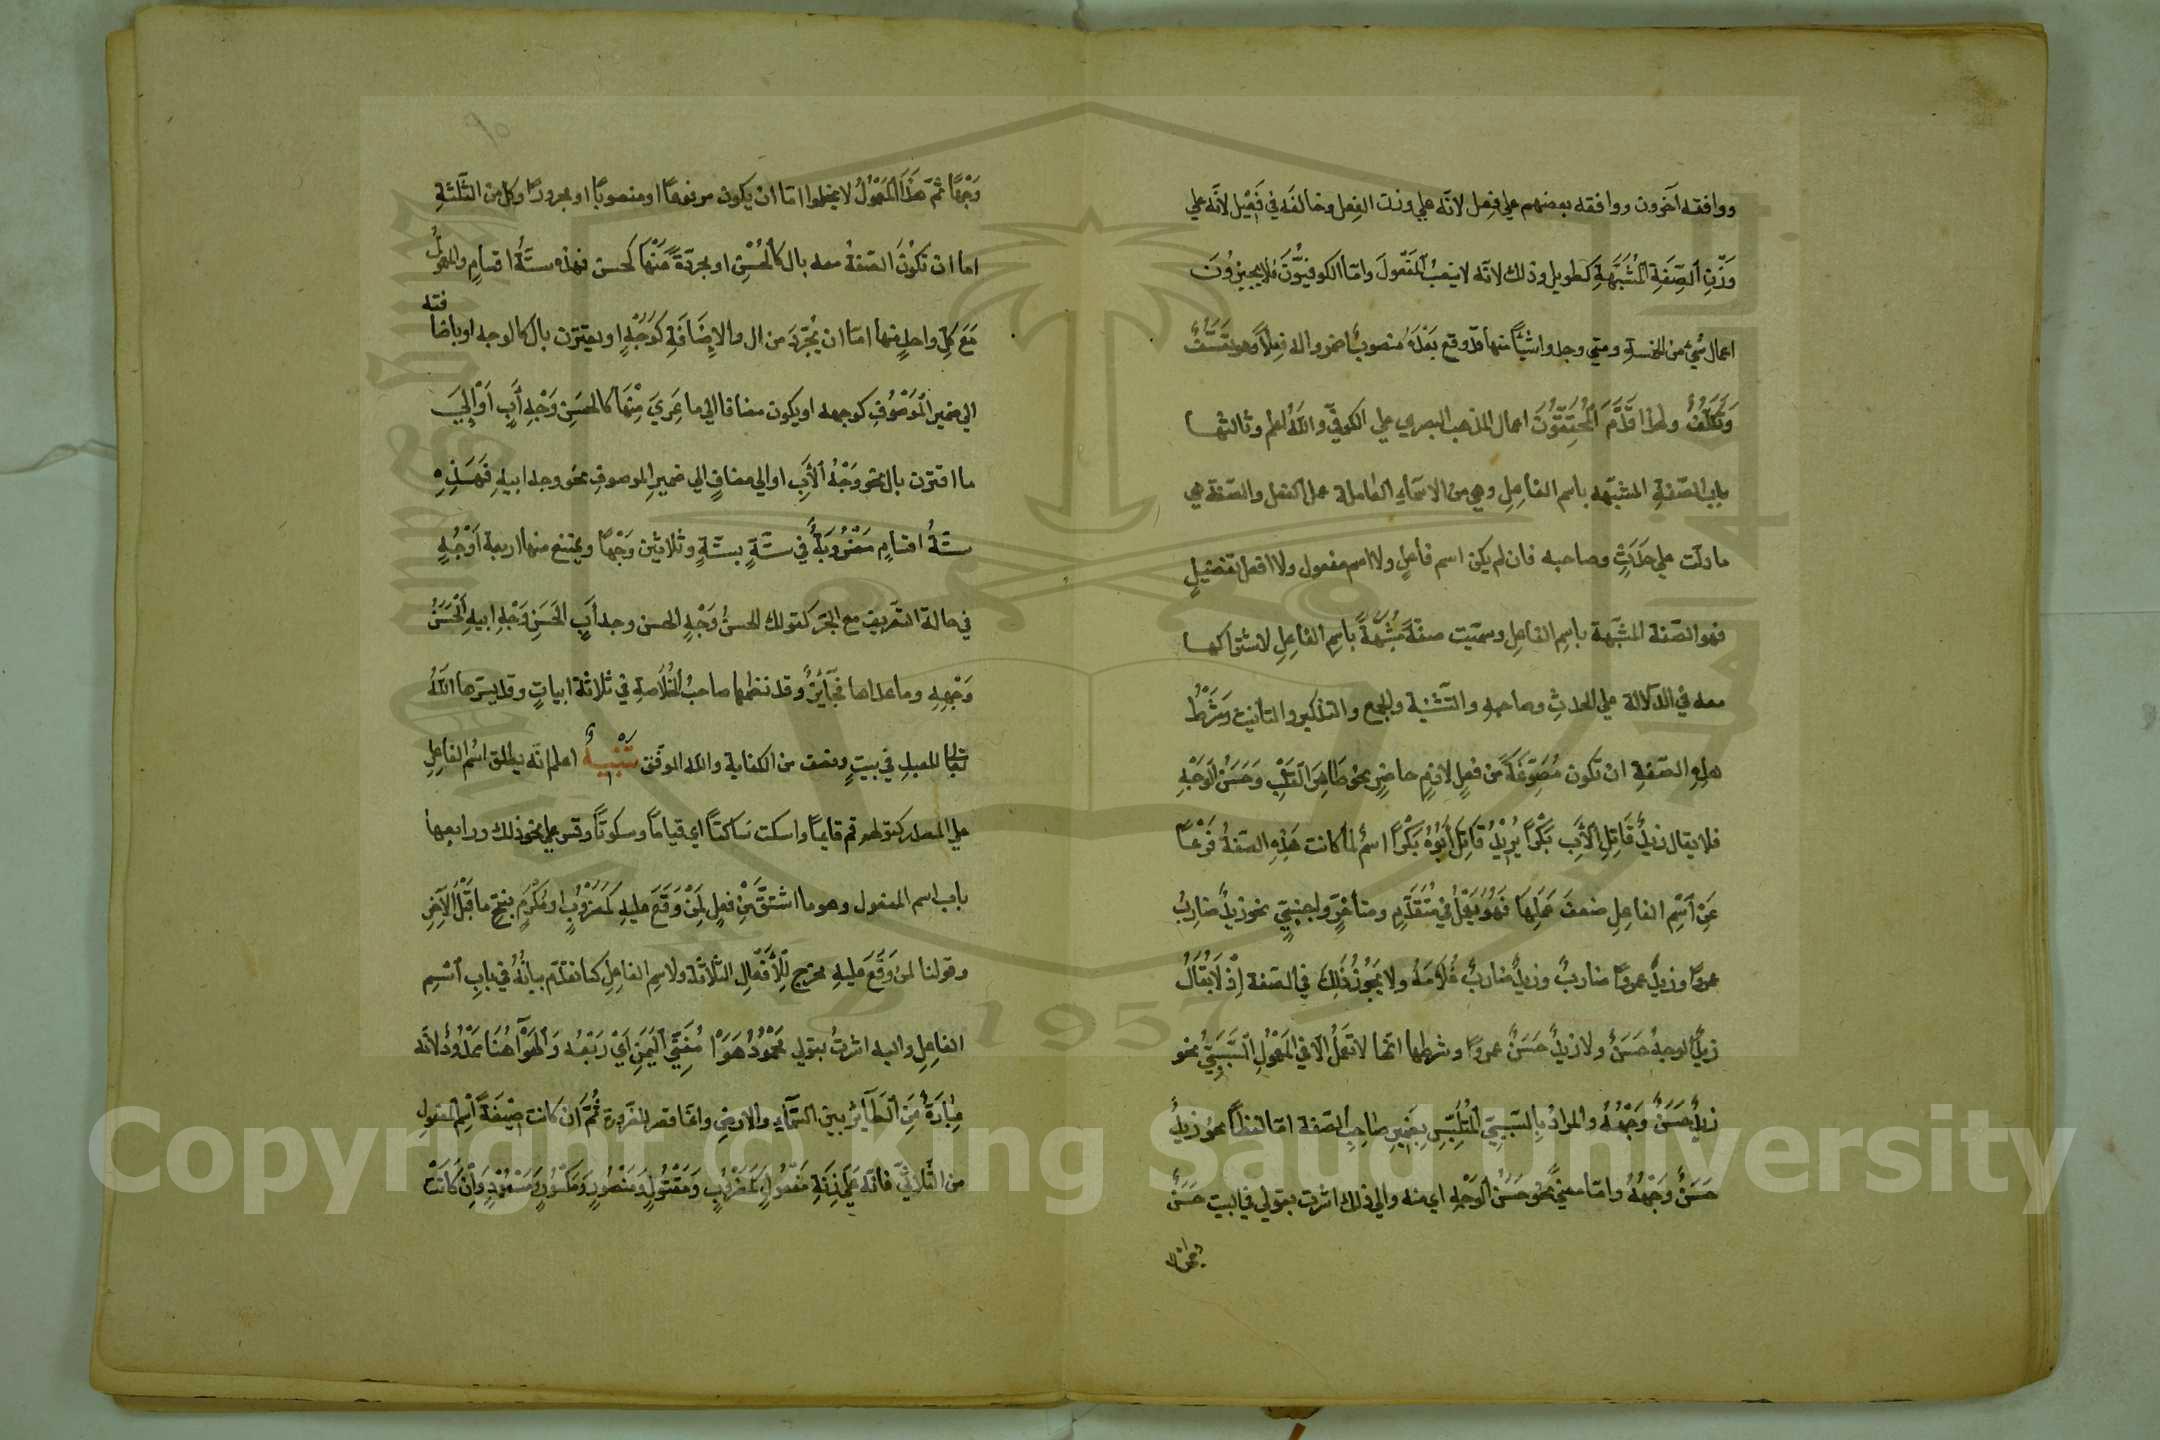 ووافقه آخرون ووافقه بعضهم علي فعل لانه علي وزن الفعل وخالفه في فعيل لانه علي
وَزْنِ الصِّفَةِ الْمُشَبَّهَةِ كطويل وذلك لانه لا ينصب الْمَفْعُولَ واما الكوفيُّونَ فلا يجيزونَ
اعمال شئ من الخمسة ومتي وجدوا شيئًا منها قد وقع بَعْدَهُ منصوبٌ اضمروا له فعلًا وهو تعسّفٌ
وَتَكَلُّفٌ ولهذا قَدَّمَ الْمُحَقِّقُونَ اعمال المذهب البصري علي الكوفيّ والله اعلم وثالثها
باب الصّفةِ المشبّهه باسم الفاعِلِ وهي من الاسماءِ العاملة عمل الفعل والصّفة هي
ما دلّت علي حَدَثٍ وصاحبه فان لم يكن اسم فاعلٍ ولا اسم مفعول ولا افعل تفضيلٍ
فهو الصّفة المشبَّهة باسم الفاعل وسمّيت صفةً مُشَبَّهَةً باسمِ الفاعِلِ لاشتراكها
معه في الدّلالة علي الحدثِ وصاحبه والتّثنية والجمع والتذكير والتانيث وَشَرْطُ
هذِهِ الصّفةِ ان تكون مَصُوغَةً من فعلٍ لازمٍ حاضرٍ نحو طَاهِرِ الْقَلْبِ وَحَسَنِ الْوَجْهِ
فلا يقال زيدٌ قَاتِلِ الْأَبِ بَكْرًا يُرِيْدُ قَاتِلٌ أَبُوهُ بَكْرًا اسمٌ لما كانت هَذِهِ الصفةُ فَرْعًا
عَنِ اسْمِ الفاعِلِ ضعفَ عَمَلِهَا فَهُوَ يَعْمَلُ في مُتَقَدِّمٍ ومتأخرٍ واجنبيٍّ نحو زيدٌ ضاربٌ
عمروًا وزيدٌ عمروًا ضاربٌ وزيدٌ ضاربٌ غُلَامَهُ ولا يَجُوزُ ذَلِكَ في الصّفة إِذْ لَا يُقَالُ
زيدٌ الوجهُ حَسَنٌ ولا زيدٌ حَسَنٌ عمروًا وشرطها انّها لا تعملُ الّا في الْمَعْمُولِ السَّبَبِيِّ نحو
زيدٌ حَسَنٌ وَجْهُهُ والمرادُ بِالسَّبَبِيِّ الْمُتَلَبِّسِ بِضَمِيرِ صاحِبِ الصّفة امّا لفظًا نحو زيدٌ
حَسَنٌ وَجْهُهُ وامّا معنيً نحو حَسَنُ الْوَجْهِ اي منه والي ذلك اشرت بقولي في البيت حَسَنٌ
وَجْهًا ثمّ هَذَا الْمَعْمُولُ لا يخلوا امّا ان يكون مرفوعًا او منصوبًا او مجرورًا وكل من الثّلثةِ
اما ان تكُونَ الصّفةُ معه بال كَالْحُسْنِ او مجردةً مِنْهَا كحسن فهذه ستّةُ اقسامٍ والمعمولُ
مَعَ كلّ واحدٍ منها امّا ان يُجَرَّدَ من ال والاِضَافَةِ كَوَجْهٍ او يقترن بال كالوجه او باضافته
الي ضمير الْمَوْصُوفِ كوجهه او يكون مضافا الي ما عَرِيَ مِنْهَا كالحسن وَجْهِ أَبٍ اَوْ اِلَيَ
ما اقترن بال نحو وَجْهُ الْأَبِ او الي مضافٍ الي ضميرِ الموصوفِ نحو وجه ابيهِ فَهَذِهِ
ستّةُ اقسامٍ مَضْرُوبَةً في ستّةٍ بستّةٍ وثلاثين وَجْهًا ويمتنع منها اربعة اَوْجُهٍ
في حالة التعريف مع الجرّ كقولك الحسنُ وَجْهٍ الحسن وجه أَبٍ الحَسَنِ وَجْهِ ابيهِ الْحَسَنُ
وَجْهِهِ وما عداها فَجَائِزٌ وقد نظمها صاحبُ الْخُلَاصَةِ في ثلاثة ابياتٍ وقد يسّرها اللهُ
تعالى للعبدِ في بيتٍ ونصف من الكفاية والله الموفّق تَنْبِيهٌ اعلم انّه يطلق اسْمُ الفاعِلِ
علي المصدر كقولهم قم قايمًا واسكت سَاكتًا اي قيامًا وسكوتًا وقس علي نحو ذلك ورابعها
باب اسم المفعول وهو ما اشتقّ مِنْ فعلٍ لِمَنْ وَقَعَ عليهِ كَمَضْرُوبٍ او مُكْرَمٍ بفتح ما قَبْلَ الْآخِرِ
وقولنا لمن وَقَعَ عليهِ مخرج لِلْأَفْعَالِ الثّلاثة ولاسمِ الفاعِلِ كما تقدّم بيانُهُ في بابِ اسْمِ
الفاعِلِ واليه اشرتُ بقولي مَحْمُودُ هَوَا مُغَنِّي الْيَمَنِ أَيْ رَبْعُه وَالْهَوَآ هُنَا مَمْدُودٌ لأنّه
عِبَارَةٌ مِنَ الْطَآئِرِ بين السّمآءِ والارضِ وانّما قصر للضّرورة ثُمَّ ان كانت صِيْغَةُ اسْمِ الْمفعولِ
من الثّلاثيِّ فانّه عَلَي زِنَةِ مَفْعُولٍ كَمَضْرُوبٍ وَمَقْتُولٍ وَمَنْصُورٍ وَمَكْسُورٍ وَمَسْعُودٍ وَاِنْ كَانَتْ
Copyright © King Saud University
1957